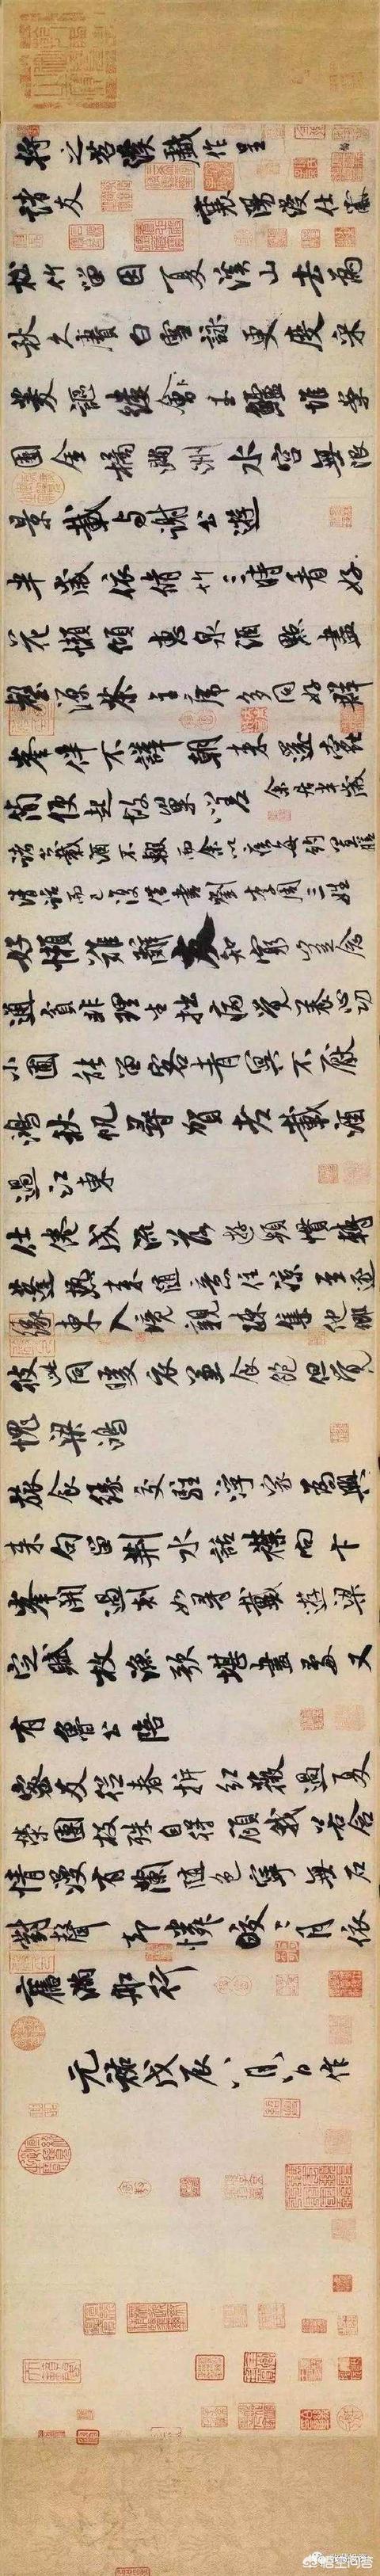 將之苕溪戲作呈
諸友 襄陽漫仕黻
松竹留因夏溪山去為
秋久賡白雪詠更度采
菱謳縷會玉鱸堆案
團金橘滿洲水宮無限
景載與謝公遊
半歲依脩竹三時看好
花懶傾惠泉酒點盡
壑源茶主席多同好群
峯伴不譁朝來還蠹
簡便起故巢嗟 余居半歲
諸公載酒不輟而余以疾每約置膳
清話而已復借書劉李周三姓
好懶難辭友知窮豈念
通貧非理生拙病覺養心功
小圃能留客青冥不厭
鴻秋帆尋賀老載酒
過江東
仕倦成流落遊頻慣轉
蓬熱來隨意住涼至逐
緣東入境親疎集他鄉
彼此同暖衣兼食飽但覺
愧梁鴻
旅食緣交駐浮家為興
來句留荆水話襟向卞
峯開過剡如尋戴遊梁
定賦枚漁歌堪畫處又
有魯公陪
密友從春拆紅薇過夏
榮團枝殊自得顧我若含
情漫有蘭隨色寧無石
對聲却憐皎皎月依
舊滿船行
元祐戊辰八月八日作
悟空问答